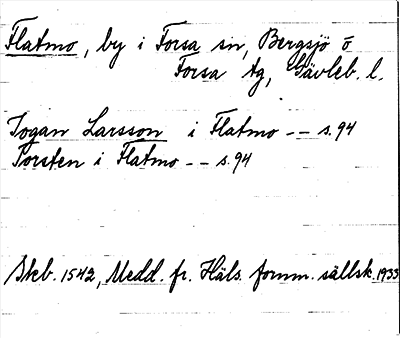 Flatmo, by i Forsa sn, Bergsjö o
Forsa tg, Gävleb. l.
Jogan Larsson i Flatmo -- s. 94
Torsten i Flatmo -- s. 94
Skb. 1542, Medd. fr. Häls. fornm. sällsk. 1933